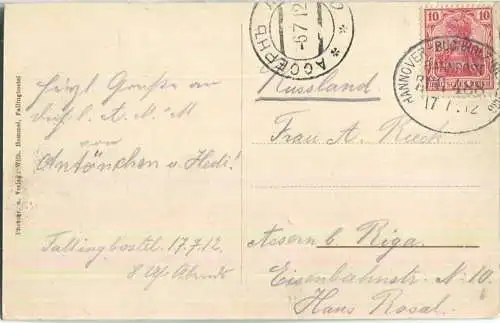 АССЕРНЪ
-6.7.12
10
HANNOVER - BUCHHOLZ
BAHNPOST
17.7.12
Photogr. u. Verlag: Wilh. Hommel, Fallingbostel
herzl. Grüße an
A. M.
von
Antönchen u. Hedi!
Fallingbostel 17.7.12
8 Uhr Abends
Russland
Frau A. Rieck
Assern b/ Riga
Eisenbahnstr. N. 10
Haus Rosal.